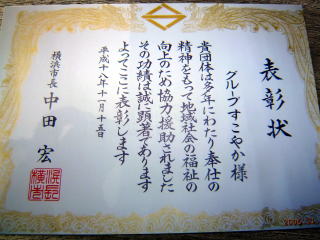 表彰状
グループすこやか様
貴団体は多年にわたり奉仕の
精神をもって地域社会の福祉の
向上のため協力援助されました
その功績は誠に顕著であります
よってここに表彰します
平成十八年十一月十五日
横浜市長 中田 宏